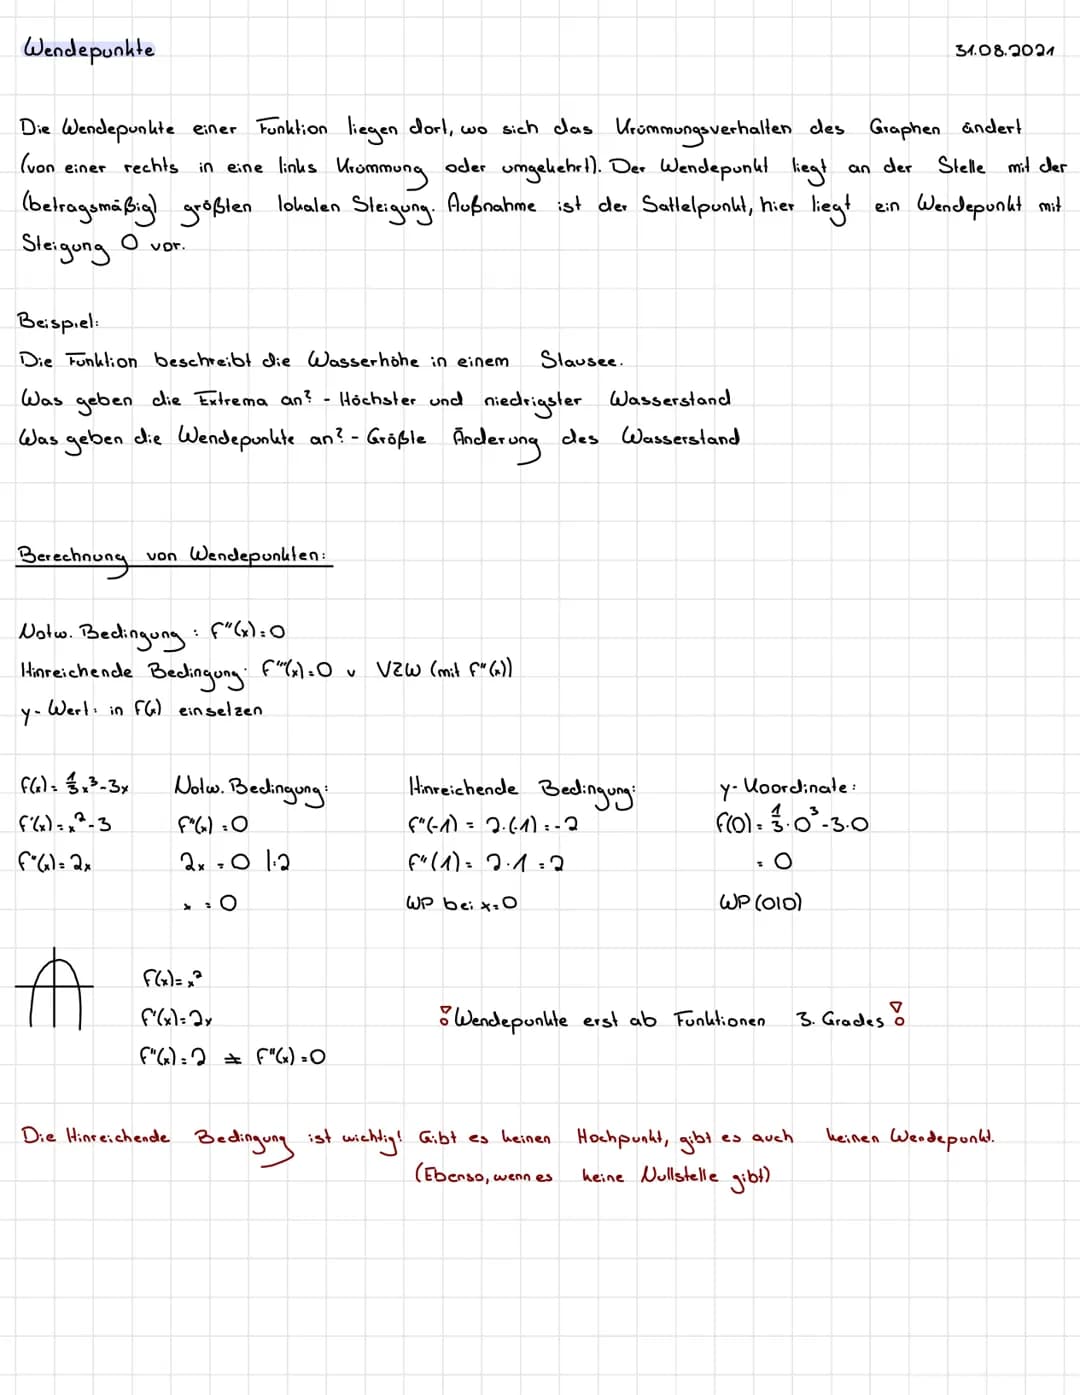 Wendepunkte
31.08.2021
Die Wendepunkte einer Funktion liegen dort, wo sich das Krümmungsverhalten des Graphen ändert
(von einer rechts in eine links Krümmung oder umgekehrt). Der Wendepunkt liegt an der Stelle mit der
(betragsmäßig) größten lokalen Steigung. Außnahme ist der Sattelpunkt, hier liegt ein Wendepunkt mit
Steigung 0 vor.
Beispiel:
Die Funktion beschreibt die Wasserhöhe in einem Stausee.
Was geben die Extrema an? - Höchster und niedrigster Wasserstand
Was geben die Wendepunkte an? - Größte Änderung des Wasserstand
Berechnung von Wendepunkten:
Notw. Bedingung: f"(x)=0
Hinreichende Bedingung: f"'(x)=0 v VZW (mit f"(x))
y-Wert: in f(x) einsetzen
f(x)= 1/3x³-3x
f'(x)=x²-3
f"(x)=2x
Notw. Bedingung:
f"(x)=0
2x = 0 |:2
x = 0
Hinreichende Bedingung:
f"(-1) = 2·(-1) = -2
f"(1) = 2·1 = 2
WP bei x=0
y-Koordinate:
f(0) = 1/3·0³-3·0
= 0
WP (0|0)
f(x)=x²
f'(x)=2x
f"(x)=2 ≠ f"(x)=0
! Wendepunkte erst ab Funktionen 3. Grades !
Die Hinreichende Bedingung ist wichtig! Gibt es keinen Hochpunkt, gibt es auch keinen Wendepunkt.
(Ebenso, wenn es keine Nullstelle gibt)